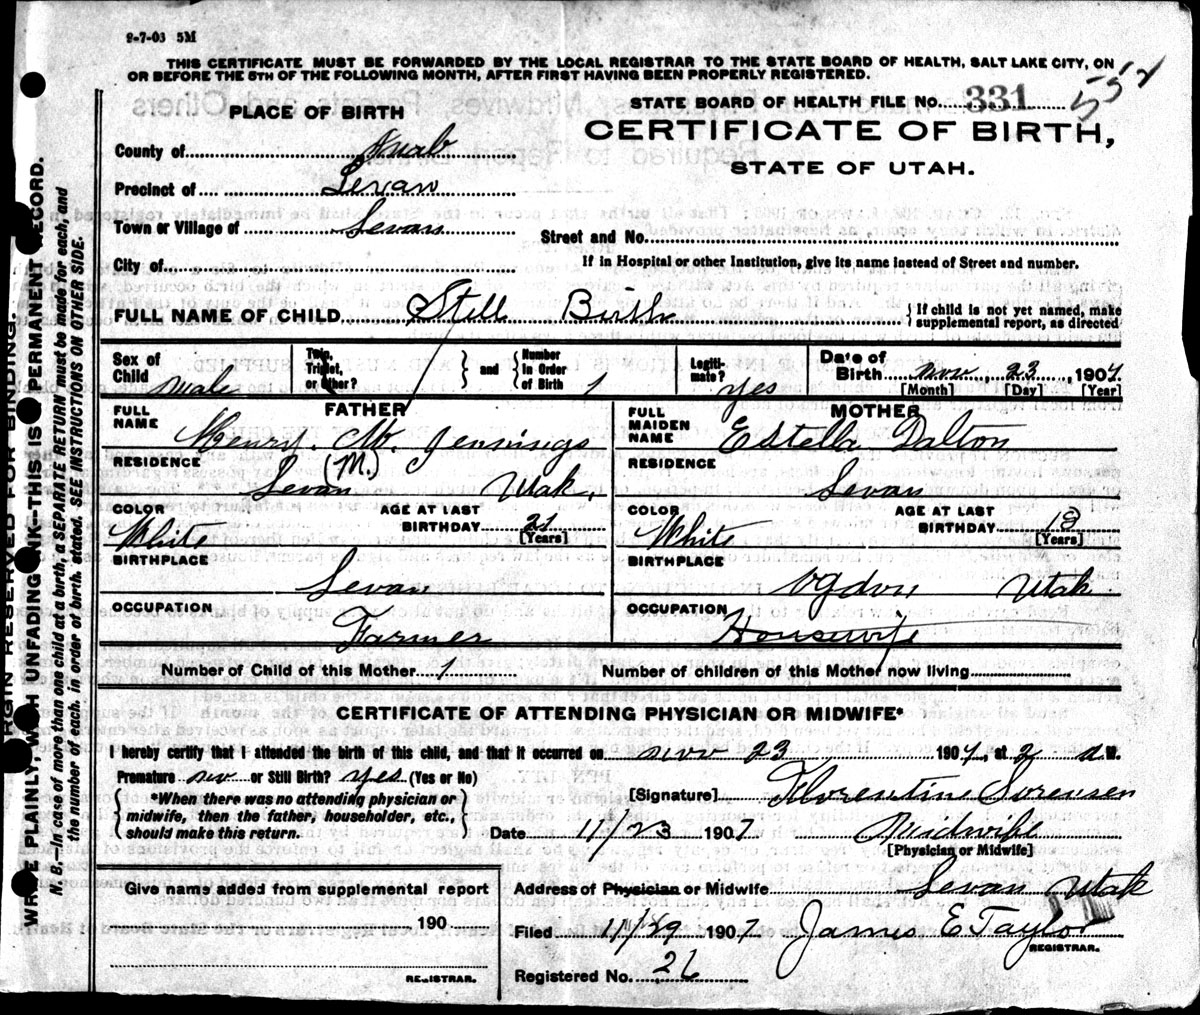 9-7-03 5M
THIS CERTIFICATE MUST BE FORWARDED BY THE LOCAL REGISTRAR TO THE STATE BOARD OF HEALTH, SALT LAKE CITY, ON
OR BEFORE THE 5TH OF THE FOLLOWING MONTH, AFTER FIRST HAVING BEEN PROPERLY REGISTERED.
STATE BOARD OF HEALTH FILE No. 331 552
PLACE OF BIRTH
CERTIFICATE OF BIRTH,
STATE OF UTAH.
County of Juab
Precinct of Levan
Town or Village of Levan
Street and No.
City of
If in Hospital or other Institution, give its name instead of Street and number.
FULL NAME OF CHILD Still Birth { If child is not yet named, make
supplemental report, as directed
Sex of Child male
Twin, Triplet, or other? } and { Number in Order of Birth 1
Legitimate? yes
Date of Birth Nov, 23, 1907.
[Month] [Day] [Year]
FATHER
FULL NAME Henry. M. Jennings
(M.)
RESIDENCE Levan Utah.
COLOR White
AGE AT LAST BIRTHDAY 21
[Years]
BIRTHPLACE Levan
OCCUPATION Farmer
MOTHER
FULL MAIDEN NAME Estella Dalton
RESIDENCE Levan
COLOR White
AGE AT LAST BIRTHDAY 18
[Years]
BIRTHPLACE Ogdon Utah.
OCCUPATION Housewife
Number of Child of this Mother 1 Number of children of this Mother now living
CERTIFICATE OF ATTENDING PHYSICIAN OR MIDWIFE*
I hereby certify that I attended the birth of this child, and that it occurred on Nov 23 1907, at 2 a.M.
Premature no or Still Birth? yes (Yes or No)
{ *When there was no attending physician or
midwife, then the father, householder, etc.,
should make this return. }
[Signature] Florentine Sorensen
Date 11/23 1907 Midwife
[Physician or Midwife]
Give name added from supplemental report
190
REGISTRAR.
Address of Physician or Midwife Levan Utah
Filed 11/29 1907 James E Taylor
REGISTRAR.
Registered No. 26
MARGIN RESERVED FOR BINDING.
WRITE PLAINLY, WITH UNFADING INK—THIS IS A PERMANENT RECORD.
N. B.—In case of more than one child at a birth, a SEPARATE RETURN must be made for each, and
the number of each, in order of birth, stated. SEE INSTRUCTIONS ON OTHER SIDE.